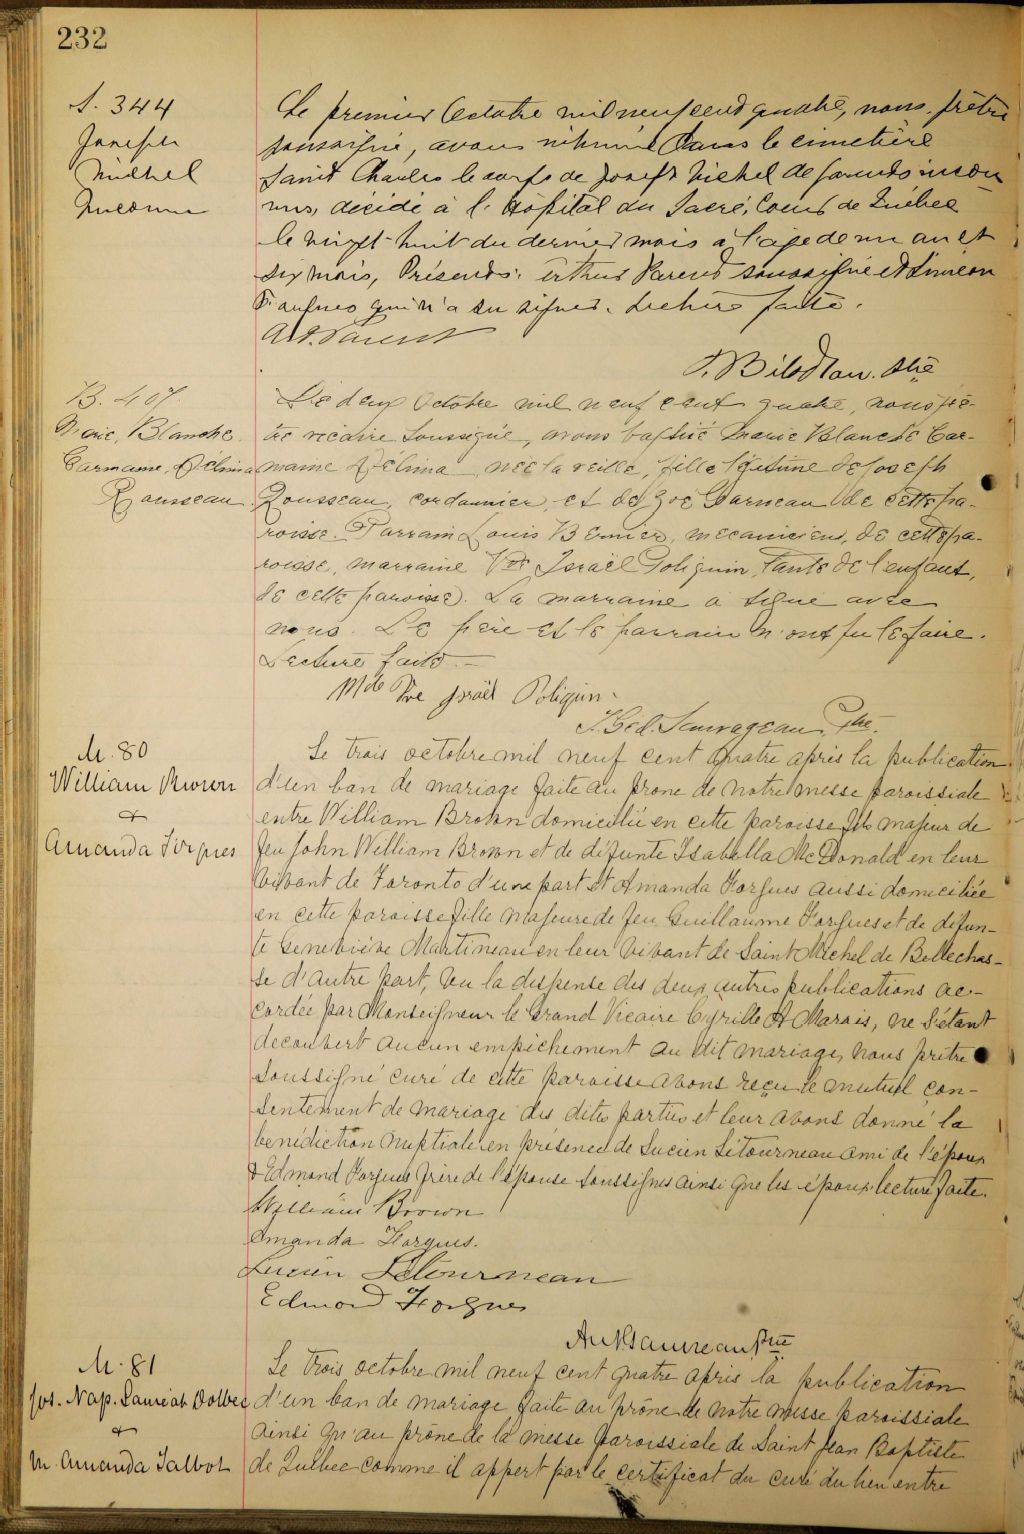 232
S. 344
Joseph
Michel
Inconnu
Le premier Octobre mil neuf cent quatre, nous, prêtre
soussigné, avons inhumé dans le cimetière
Saint Charles le corps de Joseph Michel de parents incon
nus, décédé à l'Hôpital du Sacré, Coeur de Québec
le vingt-huit du dernier mois à l'age de un an et
six mois, Présents: Arthur Parent soussigné et Siméon
qui n'a su signer. Lecture faite.
Art. Parent
Bilodeau. Ptre
B. 407
Marie, Blanche
Carmaine, Délima
Rousseau
Le deux Octobre mil neuf cent quatre, nous prê-
tre vicaire soussigné, avons baptisé Marie Blanche Car-
maine Délima née la veille, fille légitime de Joseph
Rousseau, cordonnier, et de Zoé Garneau de cette pa-
roisse. Parrain Louis Bernier, mécanicien, de cette pa-
roisse, marraine Vve Israël Poliquin, tante de l'enfant,
de cette paroisse. La marraine a signé avec
nous. Le père et le parrain n'ont pu le faire.
Lecture faite.—
Mde Vve Israël Poliquin
J. Ged. Sauvageau Ptre.
M. 80
William Brown
&
Amanda Forgues
Le trois octobre mil neuf cent quatre après la publication
d'un ban de mariage faite au prone de notre messe paroissiale
entre William Brown domicilié en cette paroisse fils majeur de
feu John William Brown et de défunte Isabella McDonald en leur
vivant de Toronto d'une part et Amanda Forgues aussi domiciliée
en cette paroisse fille majeure de feu Guillaume Forgues et de défun-
te Geneviève Martineau en leur vivant de Saint Michel de Bellechas-
se d'autre part, vu la dispense des deux autres publications ac-
cordée par Monseigneur le Grand Vicaire Cyrille A Marois, ne s'étant
decouvert aucun empêchement au dit mariage, nous prêtre
soussigné curé de cette paroisse avons reçu le mutuel con-
sentement de mariage des dites parties et leur avons donné la
benédiction nuptiale en présence de Lucien Létourneau ami de l'époux
& Edmond Forgues frère de l'épouse soussignés ainsi que les époux, lecture faite.
William Brown
Amanda Forgues.
Lucien Létourneau
Edmond Forgues
Ptre
M. 81
Jos. Nap. Lauréat Dolbec
&
M. Amanda Talbot
Le trois octobre mil neuf cent quatre après la publication
d'un ban de mariage faite au prône de notre messe paroissiale
ainsi qu'au prône de la messe paroissiale de Saint Jean Baptiste
de Québec comme il appert par le certificat du curé du lieu entre